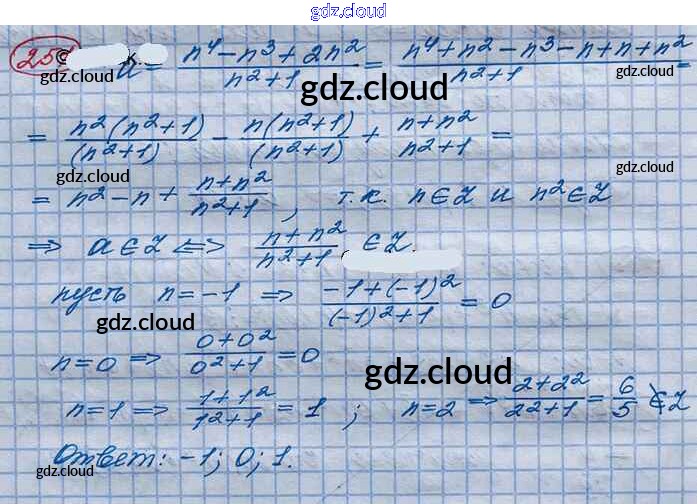 gdz.cloud
251 a = (n⁴ - n³ + 2n²)/(n² + 1) = (n⁴ + n² - n³ - n + n + n²)/(n² + 1) =
gdz.cloud gdz.cloud gdz.cloud
= n²(n² + 1)/(n² + 1) - n(n² + 1)/(n² + 1) + (n + n²)/(n² + 1) =
gdz.cloud gdz.cloud
= n² - n + (n + n²)/(n² + 1), т.к. n ∈ Z и n² ∈ Z
⇒ a ∈ Z ⇔ (n + n²)/(n² + 1) ∈ Z.
пусть n = -1 ⇒ (-1 + (-1)²)/((-1)² + 1) = 0
gdz.cloud
n = 0 ⇒ (0 + 0²)/(0² + 1) = 0
gdz.cloud
n = 1 ⇒ (1 + 1²)/(1² + 1) = 1; n = 2 ⇒ (2 + 2²)/(2² + 1) = 6/5 ∉ Z
Ответ: -1; 0; 1.
gdz.cloud gdz.cloud